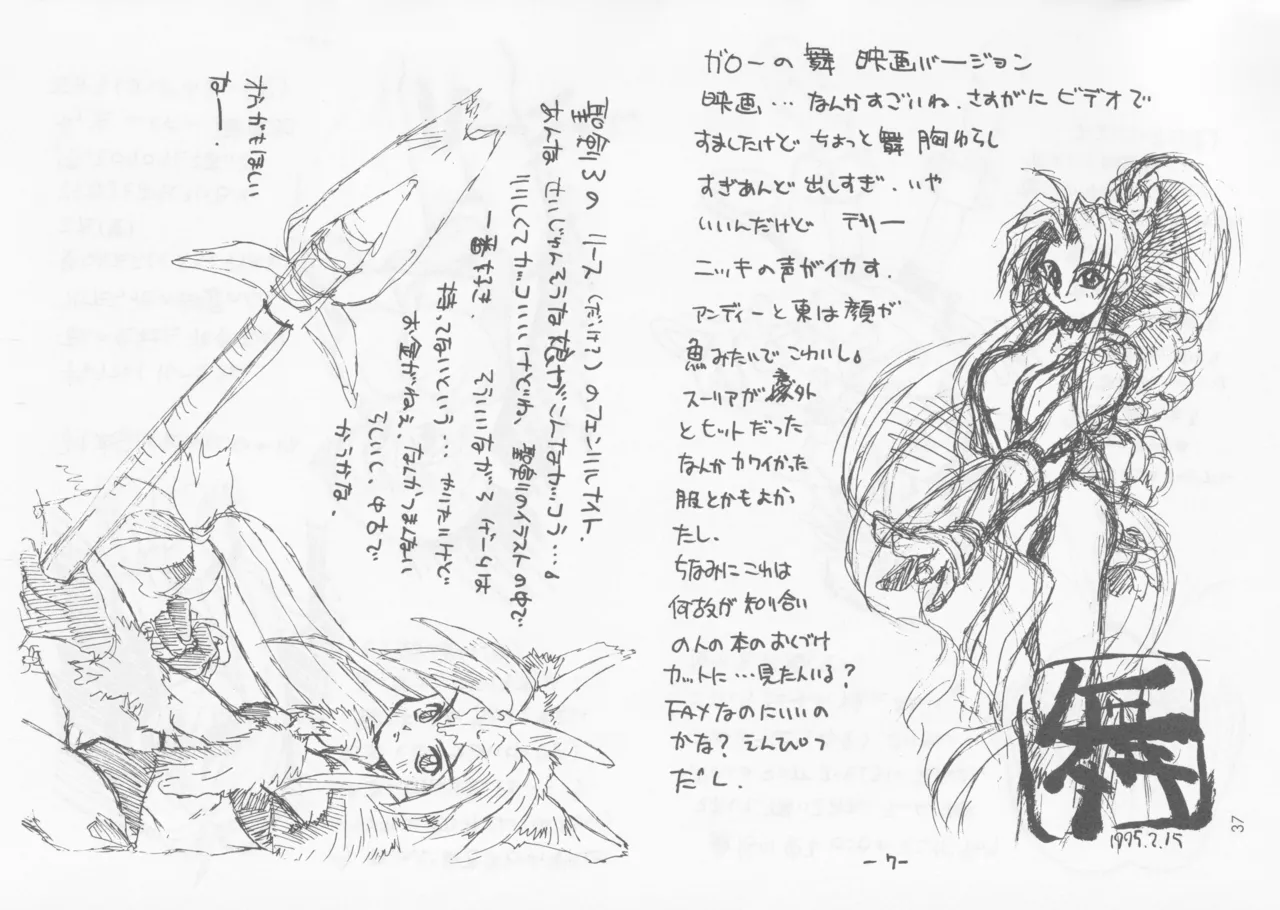 ガローの舞 映画バージョン
映画…なんかすごいね、さすがにビデオで
すましたけど ちょっと舞 胸ゆらし
すぎあんど出しすぎ、いや
いいんだけど テリー
ニッキの声がイカす、
アンディーと東は顔が
魚みたいでこわいし。
スーリアが意外
とヒットだった
なんかカワイかった
服とかもよか、
たし、
ちなみにこれは
何故が知り合い
の人の本のおしづけ
カットに…見た人いる?
FAXなのにいいの
かな? えんぴつ
だし、
1995.2.15
37
-7-
聖剣3の リース(だけ?)のフェンリルナイト、
あんな せいじゅんそうな娘がこんなカッコう…。
りりしくてカッコいいけどね、聖剣のイラストの中で
一番好き、 といいながら ゲームは
持ってないという… かりたいけど
お金がねぇ、なんかつまんない
らしいし、中古で
かうかな、
オカもほしい
ねー、